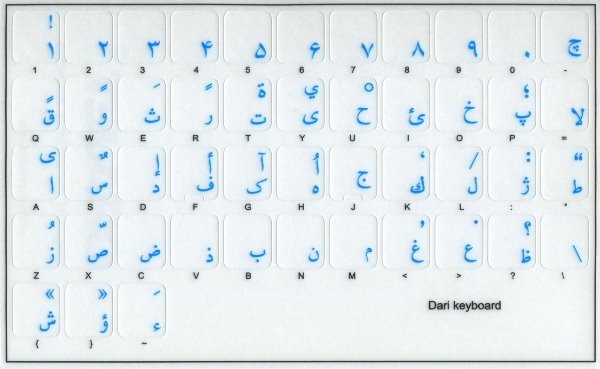 !
۱ ۲ ۳ ۴ ۵ ۶ ۷ ۸ ۹ ۰ چ
1 2 3 4 5 6 7 8 9 0 -
ة ي ؛
ق و ث ر ت ی ح ئ خ پ لا
Q W E R T Y U I O P =
ی إ أ آ أ ، / : “
ا س د ف ک ه ج ك ل ژ ط
A S D F G H J K L : "
؟
ز ص ض ذ ب ن م غ ع ظ \
Z X C V B N M < > ? \
« »
ش ؤ ء
{ } ~
Dari keyboard